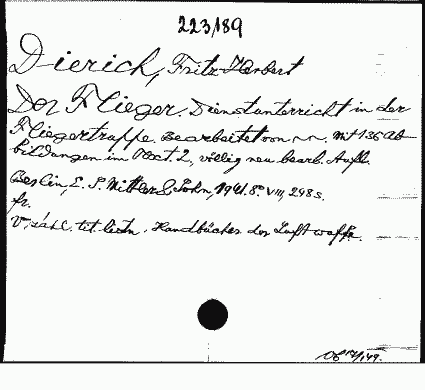 223/89
Dierich, Fritz Herbert
Der Flieger. Dienstunterricht in der
Fliegertruppe. Bearbeitet von ~~. Mit 136 Ab-
bildungen im Text. 2., völlig neu bearb. Aufl.
Berlin, E. S. Mittler & Sohn, 1941. 8°. VIII, 298 s.
fr.
V. záhl. tit. listu. Handbücher der Luftwaffe.